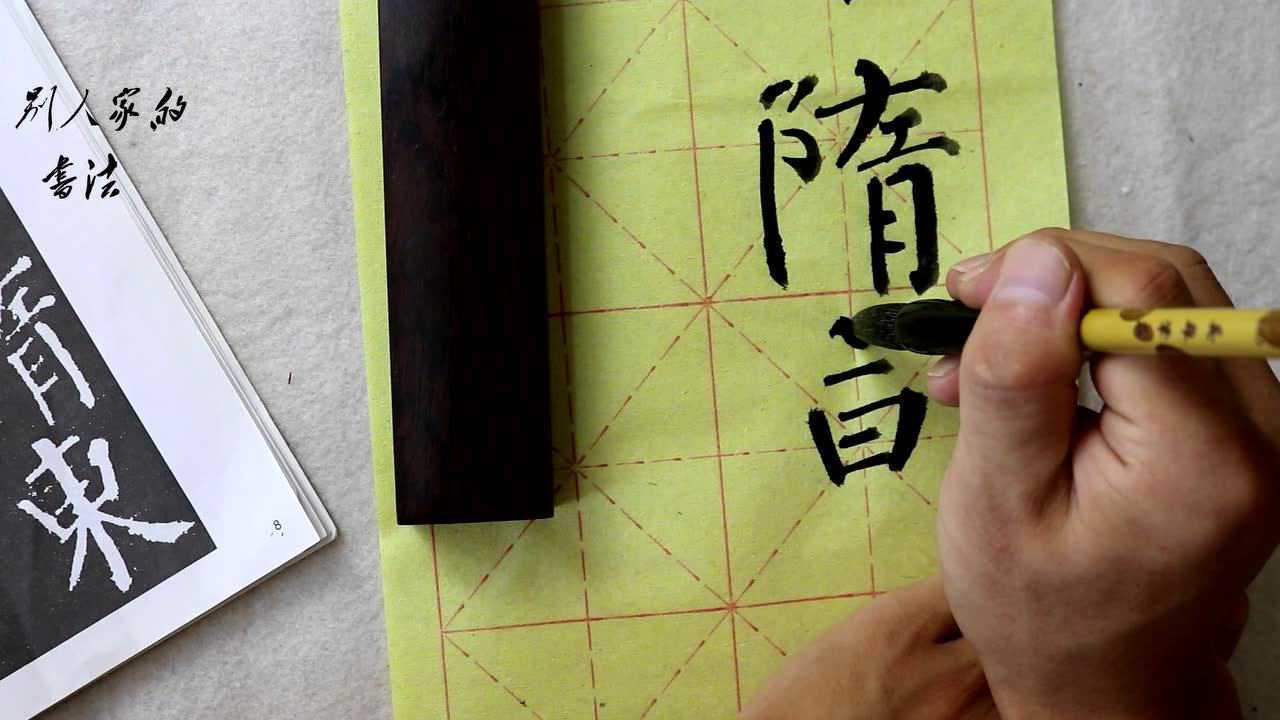 别人家的
書法
隋
東
8